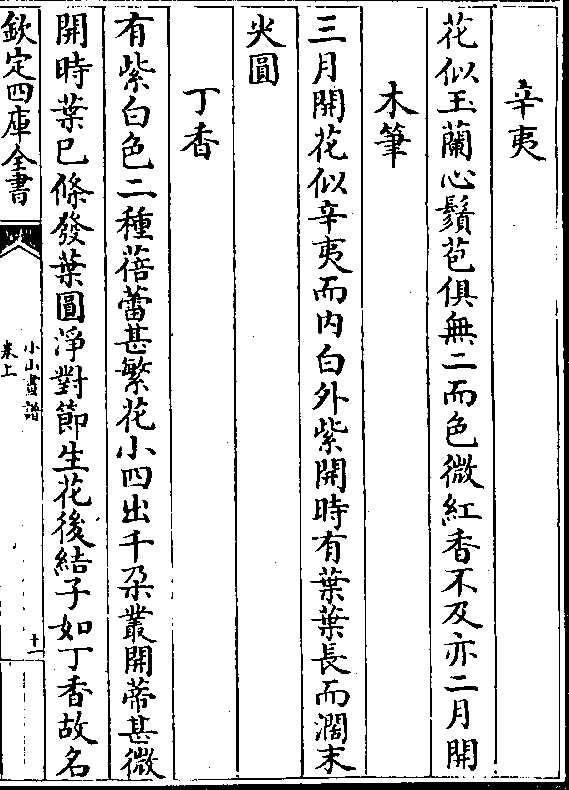 辛夷
花似玉蘭心鬚苞俱無二而色微紅香不及亦二月開
木筆
三月開花似辛夷而内白外紫開時有葉葉長而濶末
尖圓
丁香
有紫白色二種蓓蕾甚繁花小四出千朶叢開蒂甚微
開時葉已條發葉圓淨對節生花後結子如丁香故名
欽定四庫全書
小山畫譜
卷上
十一